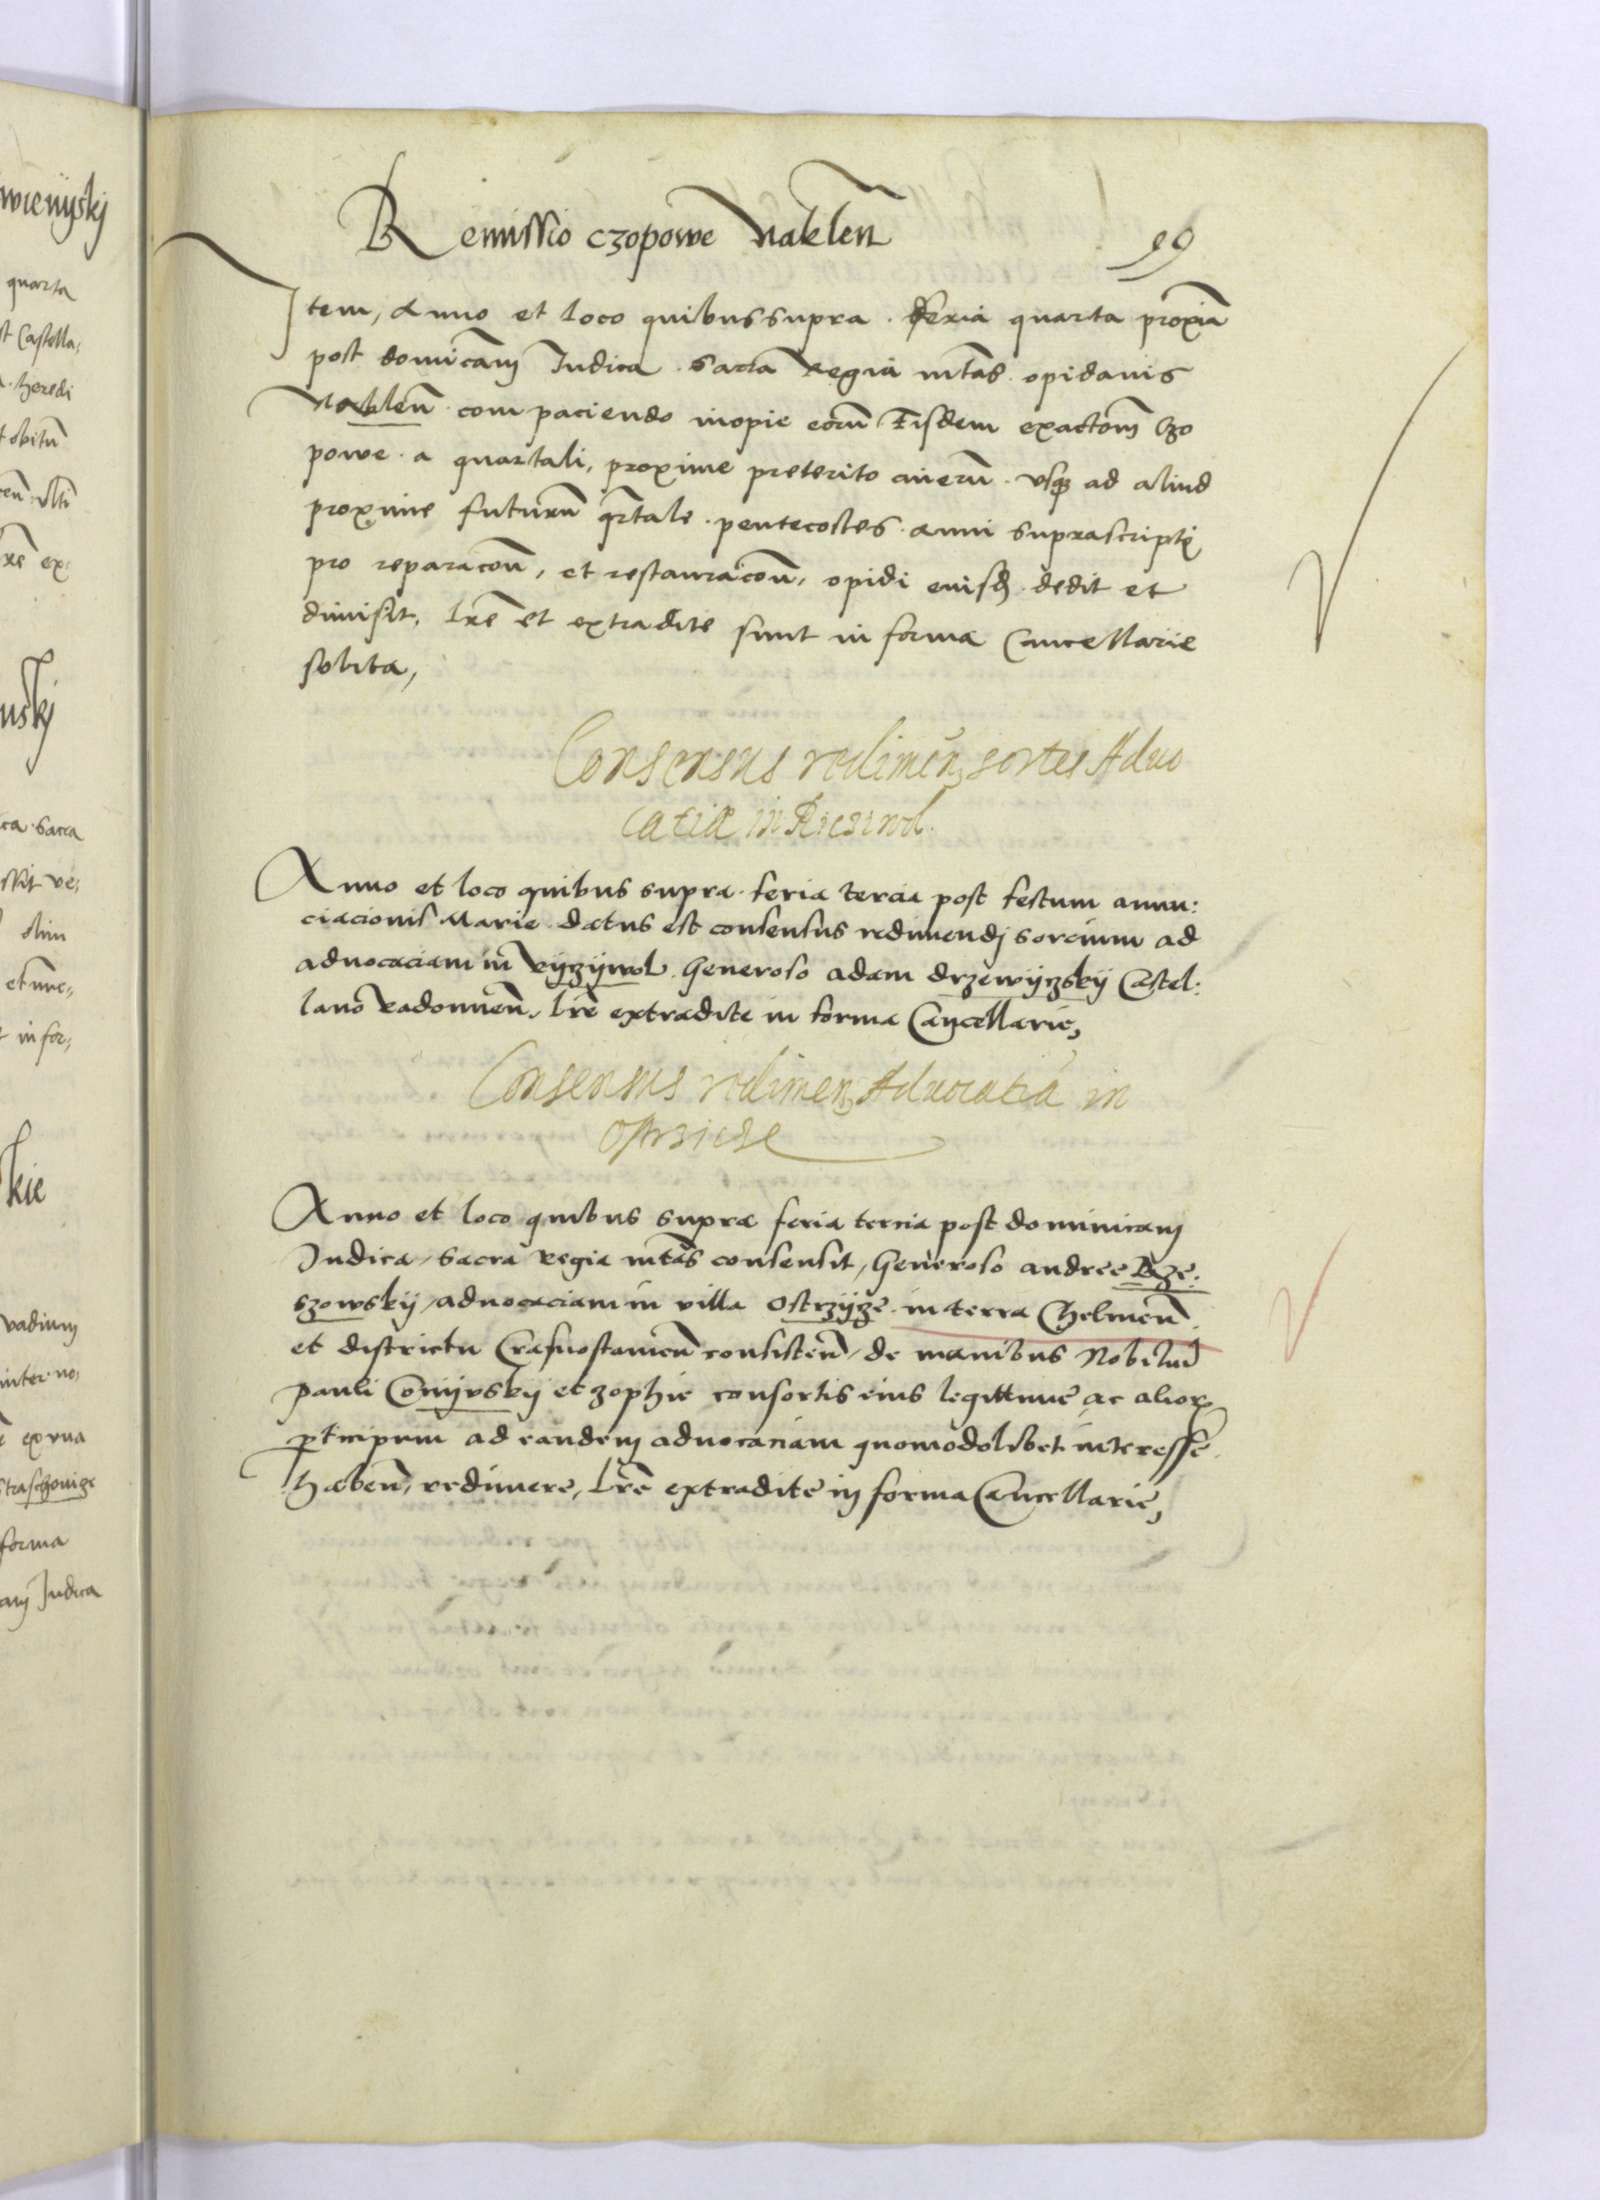 wienÿskj
quarta
st Castella,
a. heredi
t obitu
ulti
re ex
uskj
ca. Sacra
ssit ve;
olim
et unc,
t in for,
kie
vadium
inter no,
ex una
straschonize
forma
am Judica
Remissio czopowe Naklen̄
99
Item, Anno et loco quibus supra. feria quarta proxīa
post domīcam Judica. Sacra Regia mt̄as. opidanis
Naklen̄ com paciendo inopie eorū Eisdem exactōm Czo
powe. a quartali, proxime preterito cinerū. usq̄ ad aliud
proxime futurū q̄rtale. pentecostes. anni suprascripti
pro reparacōn̄, et restauracōn̄, opidi euisd̄. dedit et
dimisit, Lr̄e et extradite sunt in forma Cancellarie
solita,
Consensus redimen̄ sortes Advo
catiæ in Riczivol.
Anno et loco quibus supra. feria tercia post festum annu:
ciacionis Marie datus est consensus redimendj sorcium ad
advocaciam in Rÿczÿwol. Generoso adam drzewÿczskÿ Castel:
lano Radomien̄, Lr̄e extradite in forma Cancellarie,
Consensus redimen̄ Advocatiā in
Ostrzicze
Anno et loco quibus supra feria tercia post dominicam
Judica, Sacra Regia mt̄as consensit, Generoso andree Rze:
szowskÿ, advocaciam in villa Ostrzÿze in terra Chelmen̄.
et districtu Crasnostamen̄ consisten̄, de manibus Nobiliū
pauli et zophie consortis eius legittime ac alior̄
p̄ticipum ad eandem advocaciam quomodolibet interesse
haben̄, redimere, Lr̄e extradite in forma Cancellarie,